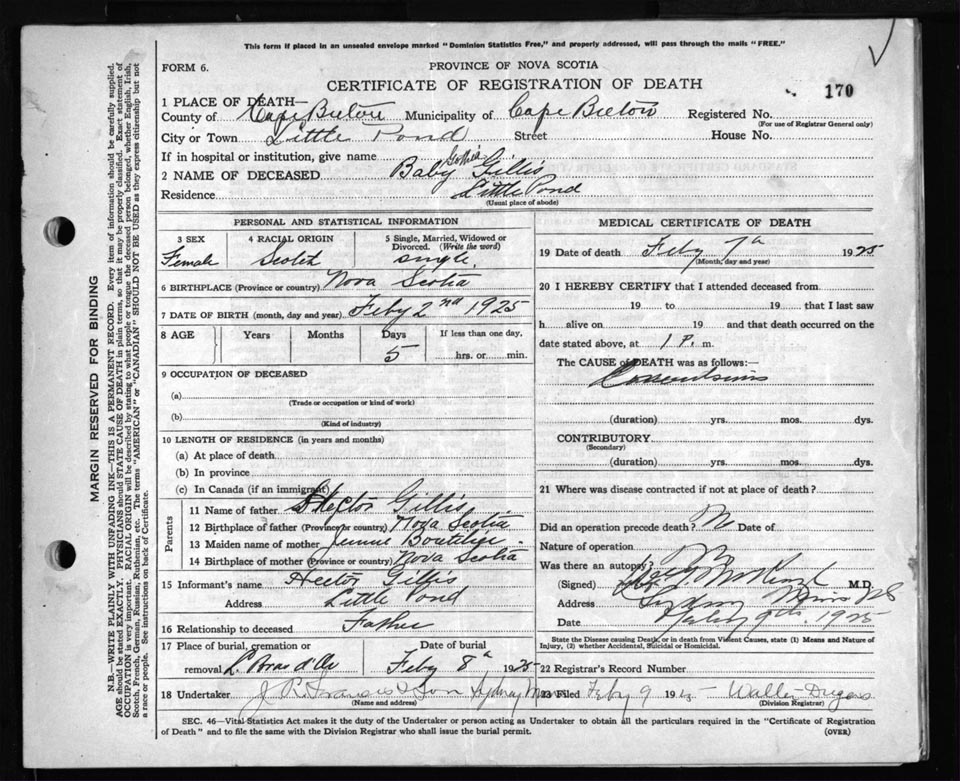 This form if placed in an unsealed envelope marked "Dominion Statistics Free," and properly addressed, will pass through the mails "FREE."
FORM 6.
PROVINCE OF NOVA SCOTIA
CERTIFICATE OF REGISTRATION OF DEATH
170
1 PLACE OF DEATH—
County of Cape Breton Municipality of Cape Breton Registered No.
(For use of Registrar General only)
City or Town Little Pond Street House No.
If in hospital or institution, give name
2 NAME OF DECEASED Baby Gillis
Residence Little Pond
(Usual place of abode)
PERSONAL AND STATISTICAL INFORMATION
3 SEX 4 RACIAL ORIGIN 5 Single, Married, Widowed or Divorced. (Write the word)
Female Scotch single
6 BIRTHPLACE (Province or country) Nova Scotia
7 DATE OF BIRTH (month, day and year) Feby 2nd 1925
8 AGE Years Months Days If less than one day,
5 hrs. or min.
9 OCCUPATION OF DECEASED
(a)
(Trade or occupation or kind of work)
(b)
(Kind of industry)
10 LENGTH OF RESIDENCE (in years and months)
(a) At place of death
(b) In province
(c) In Canada (if an immigrant)
Parents
11 Name of father Hector Gillis
12 Birthplace of father (Province or country) Nova Scotia
13 Maiden name of mother Jennie Boutilier
14 Birthplace of mother (Province or country) Nova Scotia
15 Informant's name Hector Gillis
Address Little Pond
16 Relationship to deceased Father
17 Place of burial, cremation or removal L. Bras d'Or Date of burial Feby 8th 1925
18 Undertaker J. R. Francis & Son Sydney Mines
(Name and address)
MEDICAL CERTIFICATE OF DEATH
19 Date of death Feby 7th 1925
(Month, day and year)
20 I HEREBY CERTIFY that I attended deceased from
19 to 19 that I last saw
h alive on 19 and that death occurred on
date stated above, at 1 P. m.
The CAUSE of DEATH was as follows:—
Convulsions
(duration) yrs. mos. dys.
CONTRIBUTORY
(Secondary)
(duration) yrs. mos. dys.
21 Where was disease contracted if not at place of death?
Did an operation precede death? N Date of
Nature of operation
Was there an autopsy?
(Signed) M.D.
Address Sydney Mines NS
Date 9th 1925
State the Disease causing Death, or in death from Violent Causes, state (1) Means and Nature of Injury, (2) whether Accidental, Suicidal or Homicidal.
22 Registrar's Record Number
23 Filed Feby 9 1925 Walter
(Division Registrar)
SEC. 46—Vital Statistics Act makes it the duty of the Undertaker or person acting as Undertaker to obtain all the particulars required in the "Certificate of Registration of Death" and to file the same with the Division Registrar who shall issue the burial permit.
(OVER)
MARGIN RESERVED FOR BINDING
N.B.—WRITE PLAINLY WITH UNFADING INK—THIS IS A PERMANENT RECORD. Every item of information should be carefully supplied.
AGE should be stated EXACTLY. PHYSICIANS should STATE CAUSE OF DEATH in plain terms, so that it may be properly classified. Exact statement of
OCCUPATION is very important. RACIAL ORIGIN will be described by stating to what people or tongue the deceased person belonged, whether English, Irish,
Scotch, French, German, Russian, Ruthenian, etc. The terms "AMERICAN" or "CANADIAN" SHOULD NOT BE USED as they express citizenship but not
a race or people. See instructions on back of Certificate.